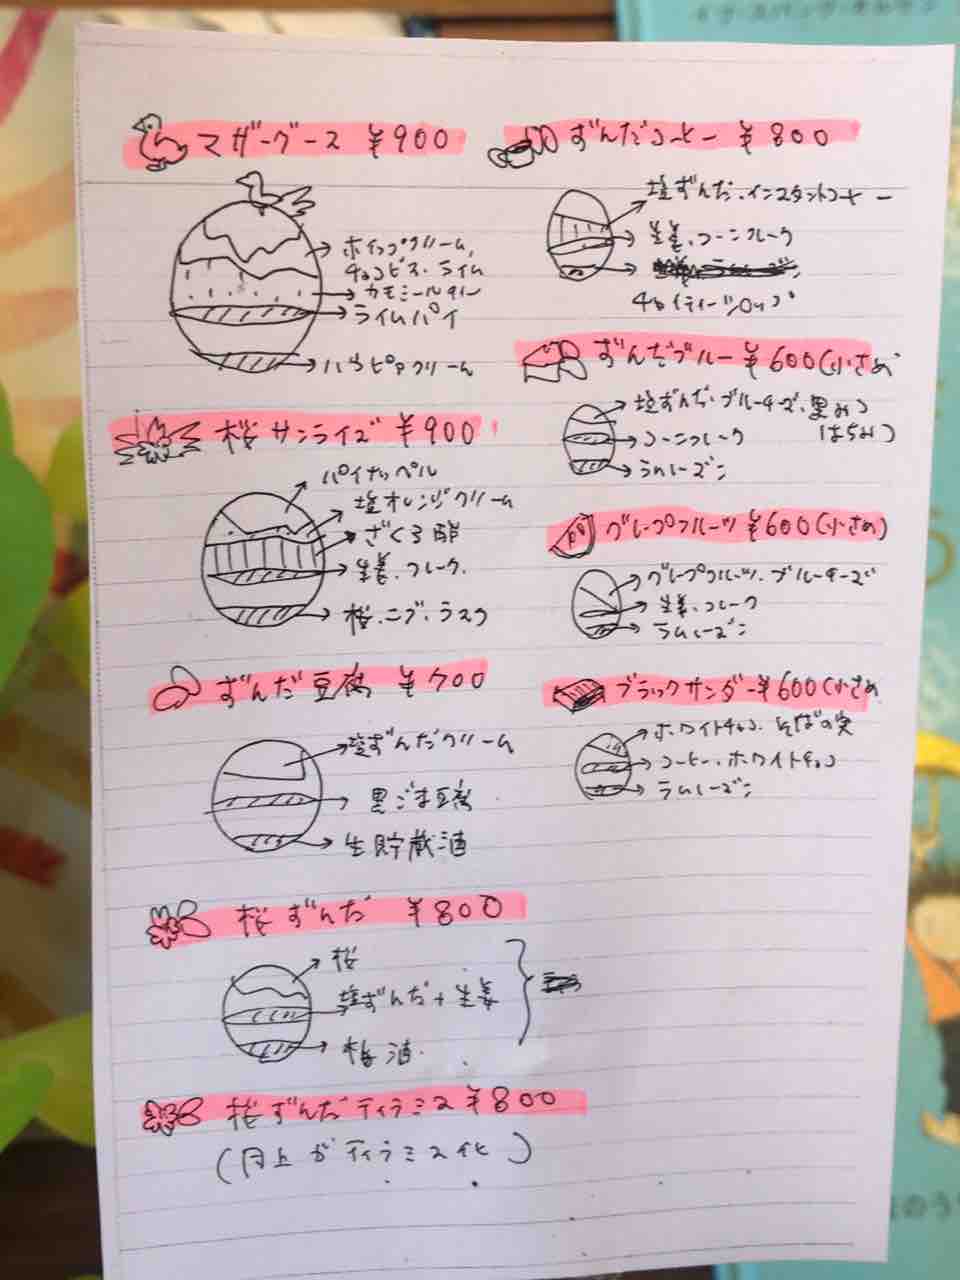 イヴ・スパング・オルセン
マザーグース ¥900
ホイップクリーム,
チョコピス・ライム
カモミールタイン
ライムパイ
ハラピニアクリーム
桜サンライズ ¥900
パイナッペル
塩オレンジクリーム
ざくろ酢
生姜・フレーク
桜・ニブ・ラスク
ずんだ豆腐 ¥700
塩ずんだクリーム
黒ごま豆腐
生貯蔵酒
桜ずんだ ¥800
桜
塩ずんだ+生姜
梅酒
桜ずんだティラミス ¥800
(同上がティラミス化)
ずんだコーヒー ¥800
塩ずんだ・インスタントコーヒー
生姜・コーンフレーク
チャイティーシロップ
ずんだブルー ¥600(小さめ
塩ずんだ・ブルーチーズ・黒みつ
はちみつ
コーンフレーク
ラムレーズン
グレープフルーツ ¥600(小さめ)
グレープフルーツ・ブルーチーズ
生姜・フレーク
ラムレーズン
ブラックサンダー ¥600(小さめ
ホワイトチョコ・そばの実
コーヒー・ホワイトチョコ
ラムレーズン
のう